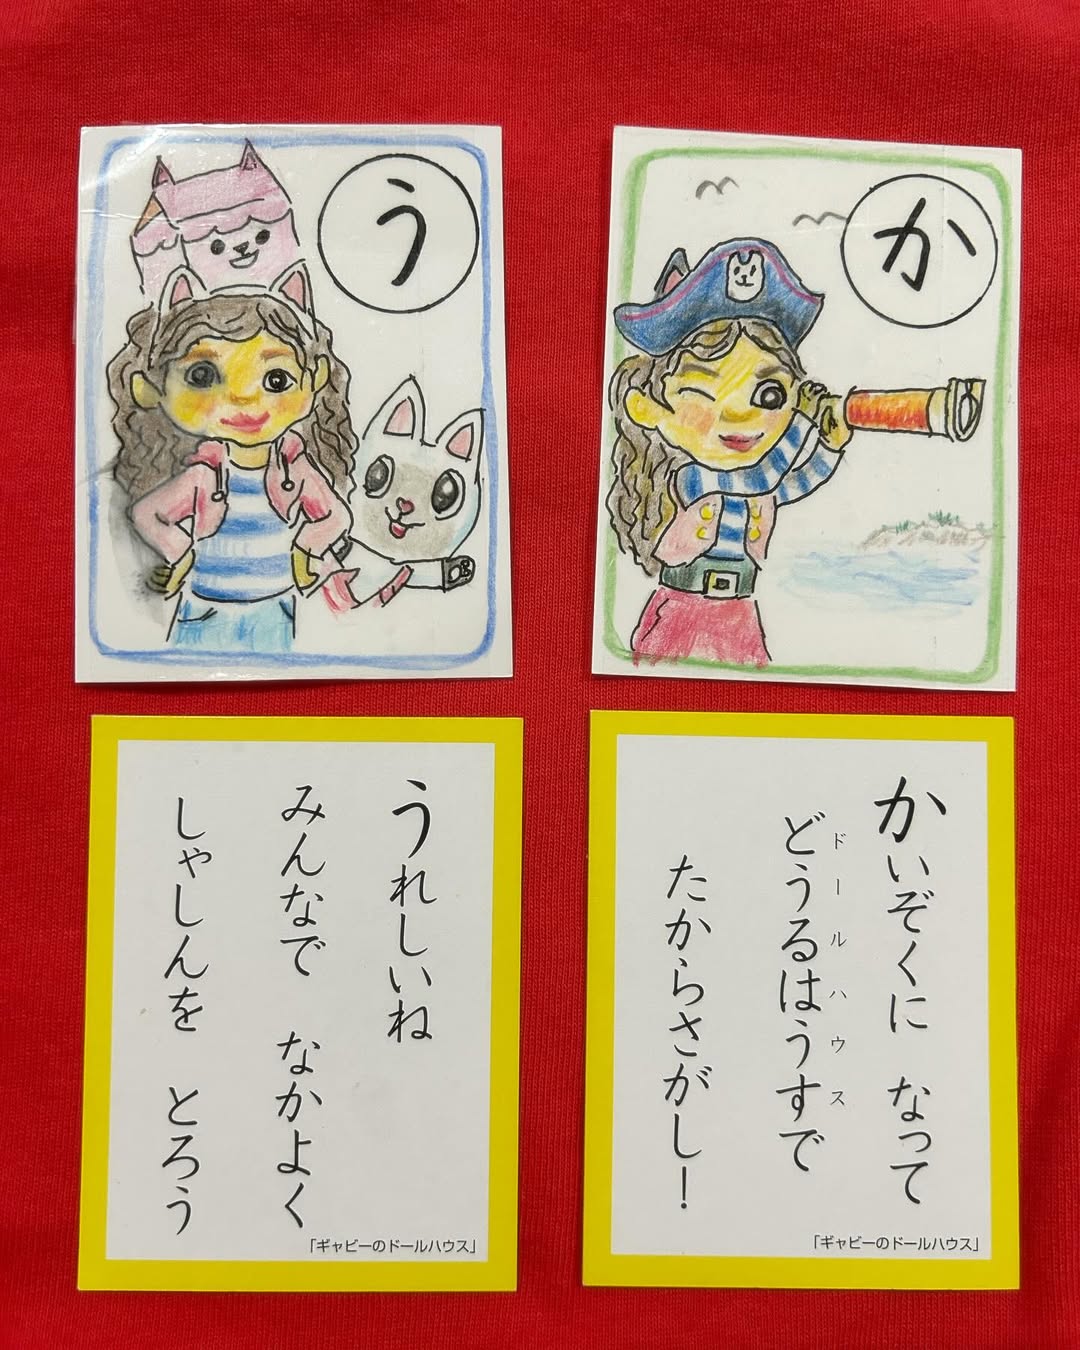 う
か
うれしいね
みんなで なかよく
しゃしんを とろう
「ギャビーのドールハウス」
かいぞくに なって
どうるはうすで
ドールハウス
たからさがし！
「ギャビーのドールハウス」